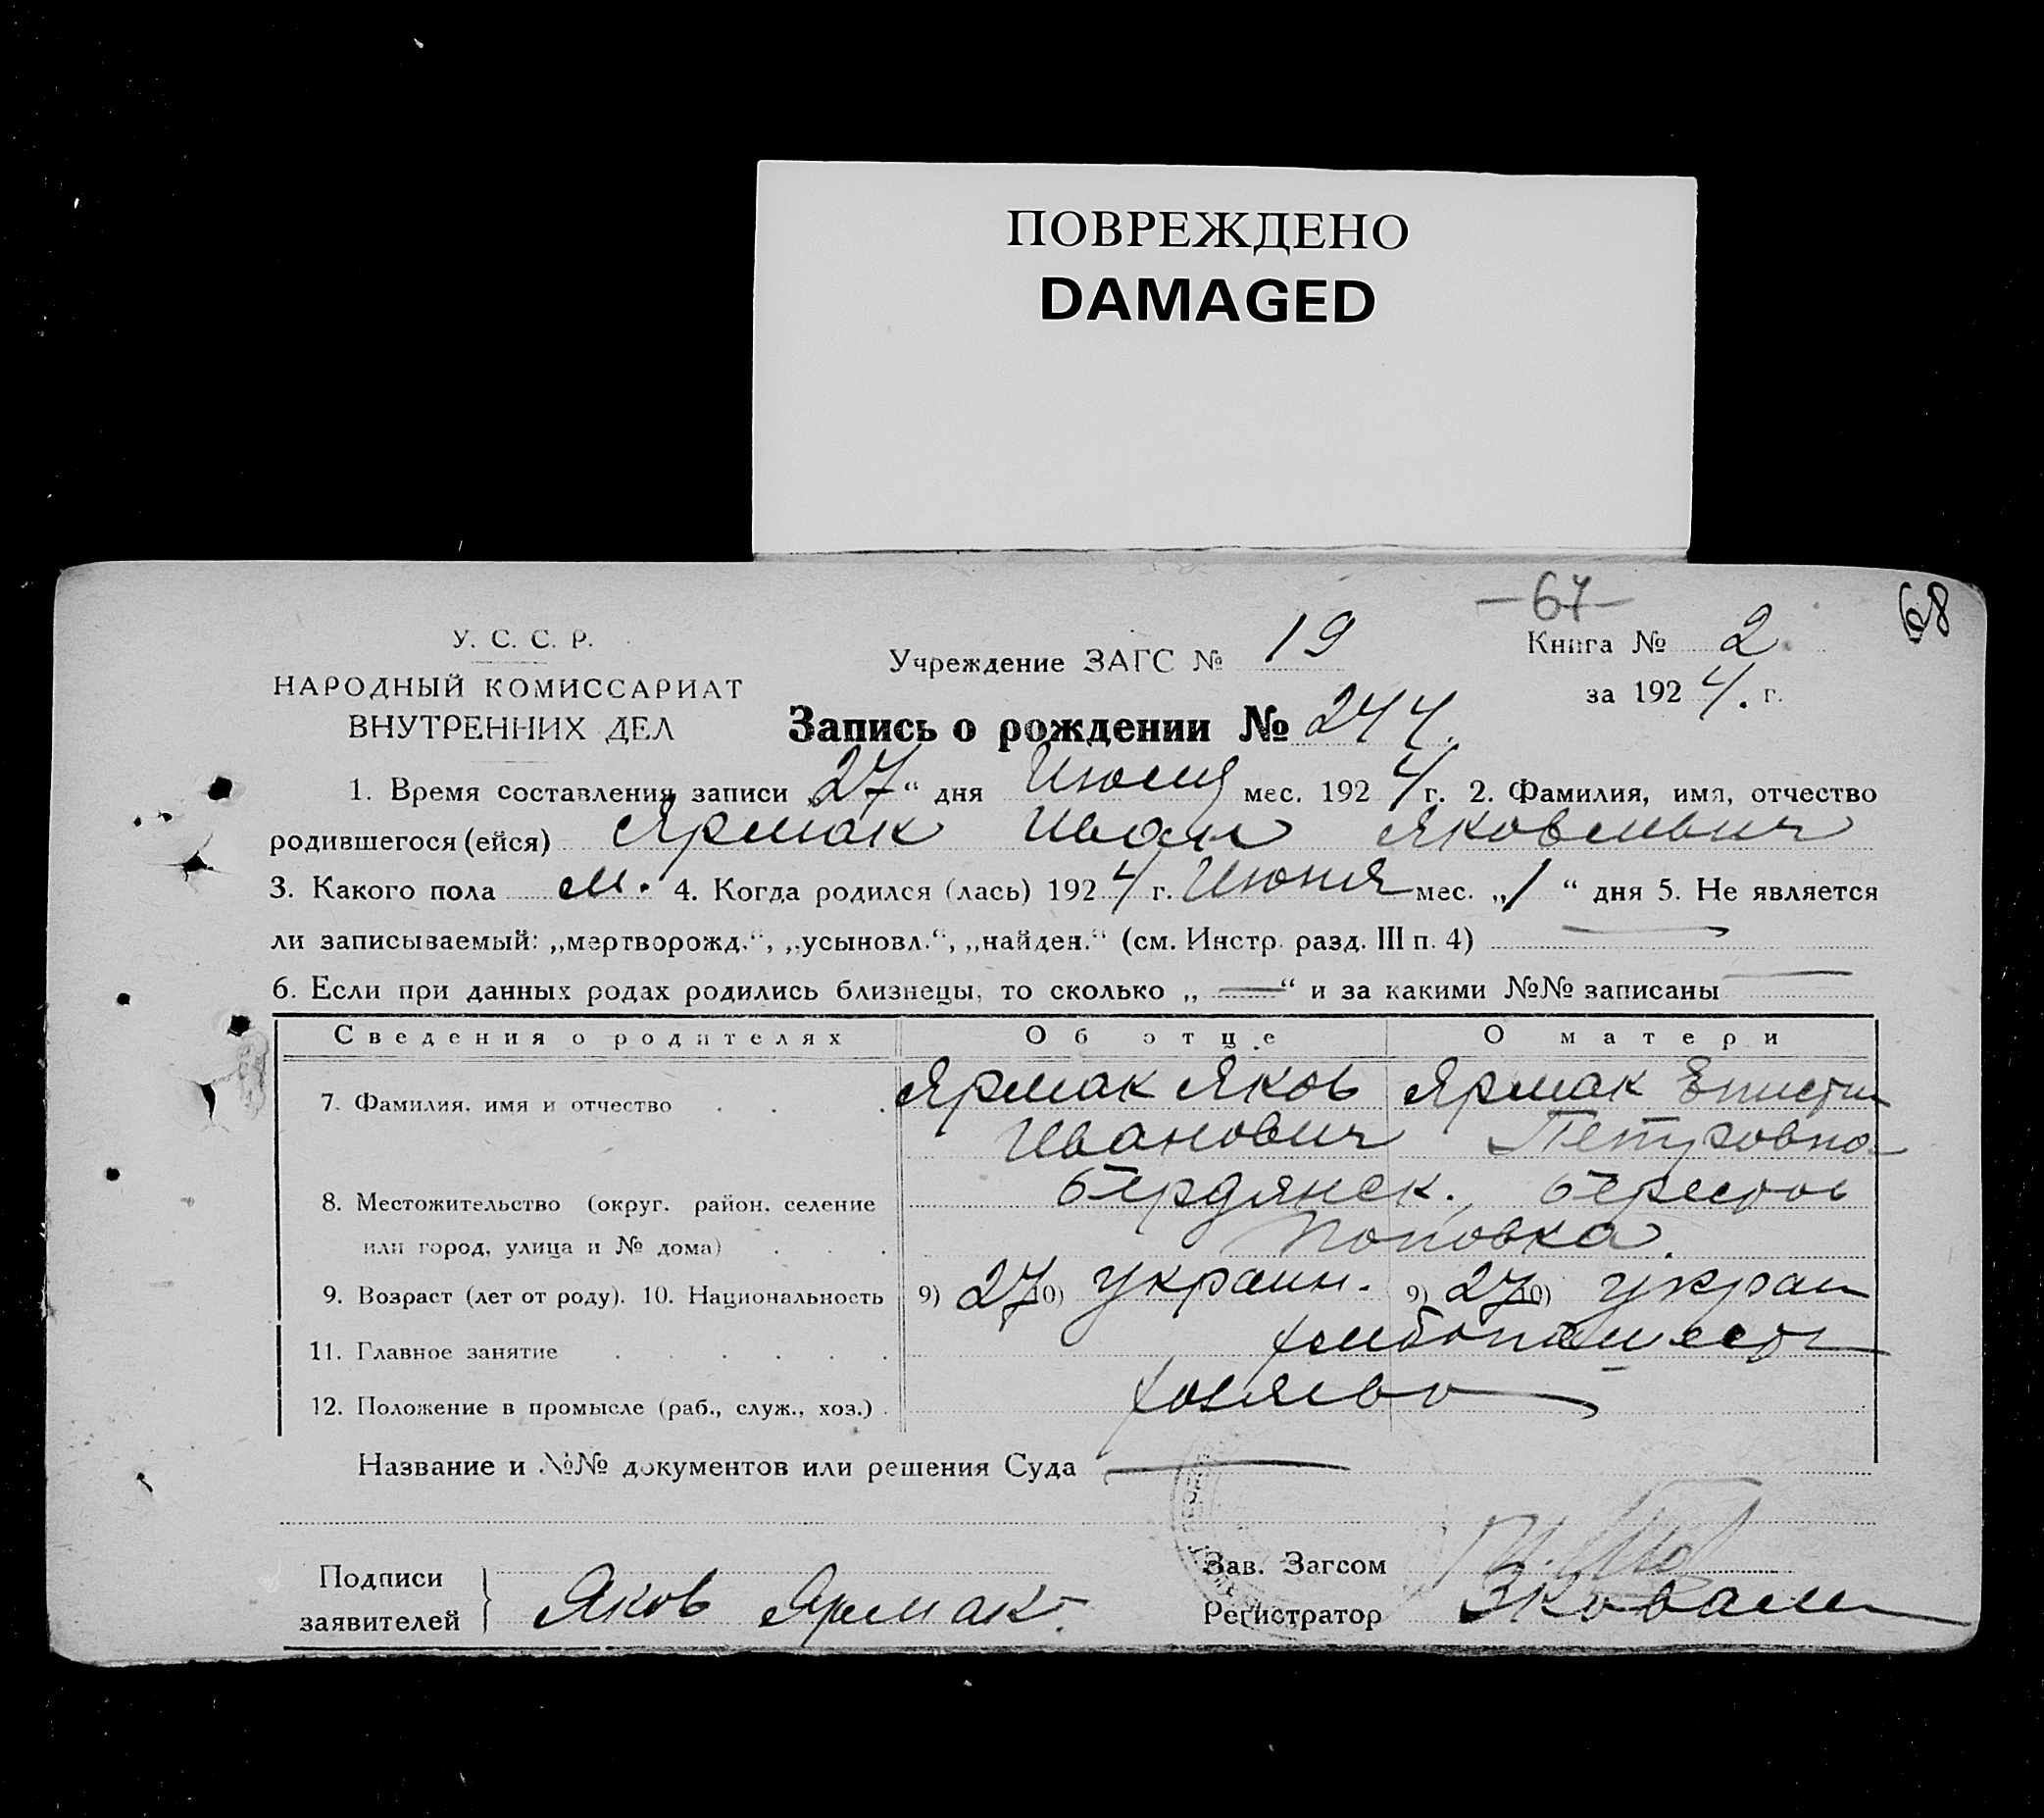 ПОВРЕЖДЕНО
DAMAGED
—67—
68
У. С. С. Р.
НАРОДНЫЙ КОМИССАРИАТ
ВНУТРЕННИХ ДЕЛ
Учреждение ЗАГС № 19
Книга № 2
за 1924. г.
Запись о рождении № 244.
1. Время составления записи „27“ дня Июля мес. 1924 г. 2. Фамилия, имя, отчество
родившегося (ейся) Ярмак Иван Яковлевич
3. Какого пола м. 4. Когда родился (лась) 1924 г. Июня мес. „1“ дня 5. Не является
ли записываемый: „мертворожд.“, „усыновл.“, „найден.“ (см. Инстр. разд. III п. 4) —
6. Если при данных родах родились близнецы, то сколько „—“ и за какими №№ записаны —
Сведения о родителях Об отце О матери
7. Фамилия, имя и отчество . . . Ярмак Яков Ярмак
Иванович Петровна
8. Местожительство (округ. район. селение Бердянск. Берестов
или город, улица и № дома) . . . Поповка.
9. Возраст (лет от роду). 10. Национальность 9) 27 10) украин. 9) 27 10) украи
11. Главное занятие . . . . . . хлебопашест
12. Положение в промысле (раб., служ., хоз.) . хозяево
Название и №№ документов или решения Суда —
Подписи
заявителей } Яков Ярмак.
Зав. Загсом
Регистратор